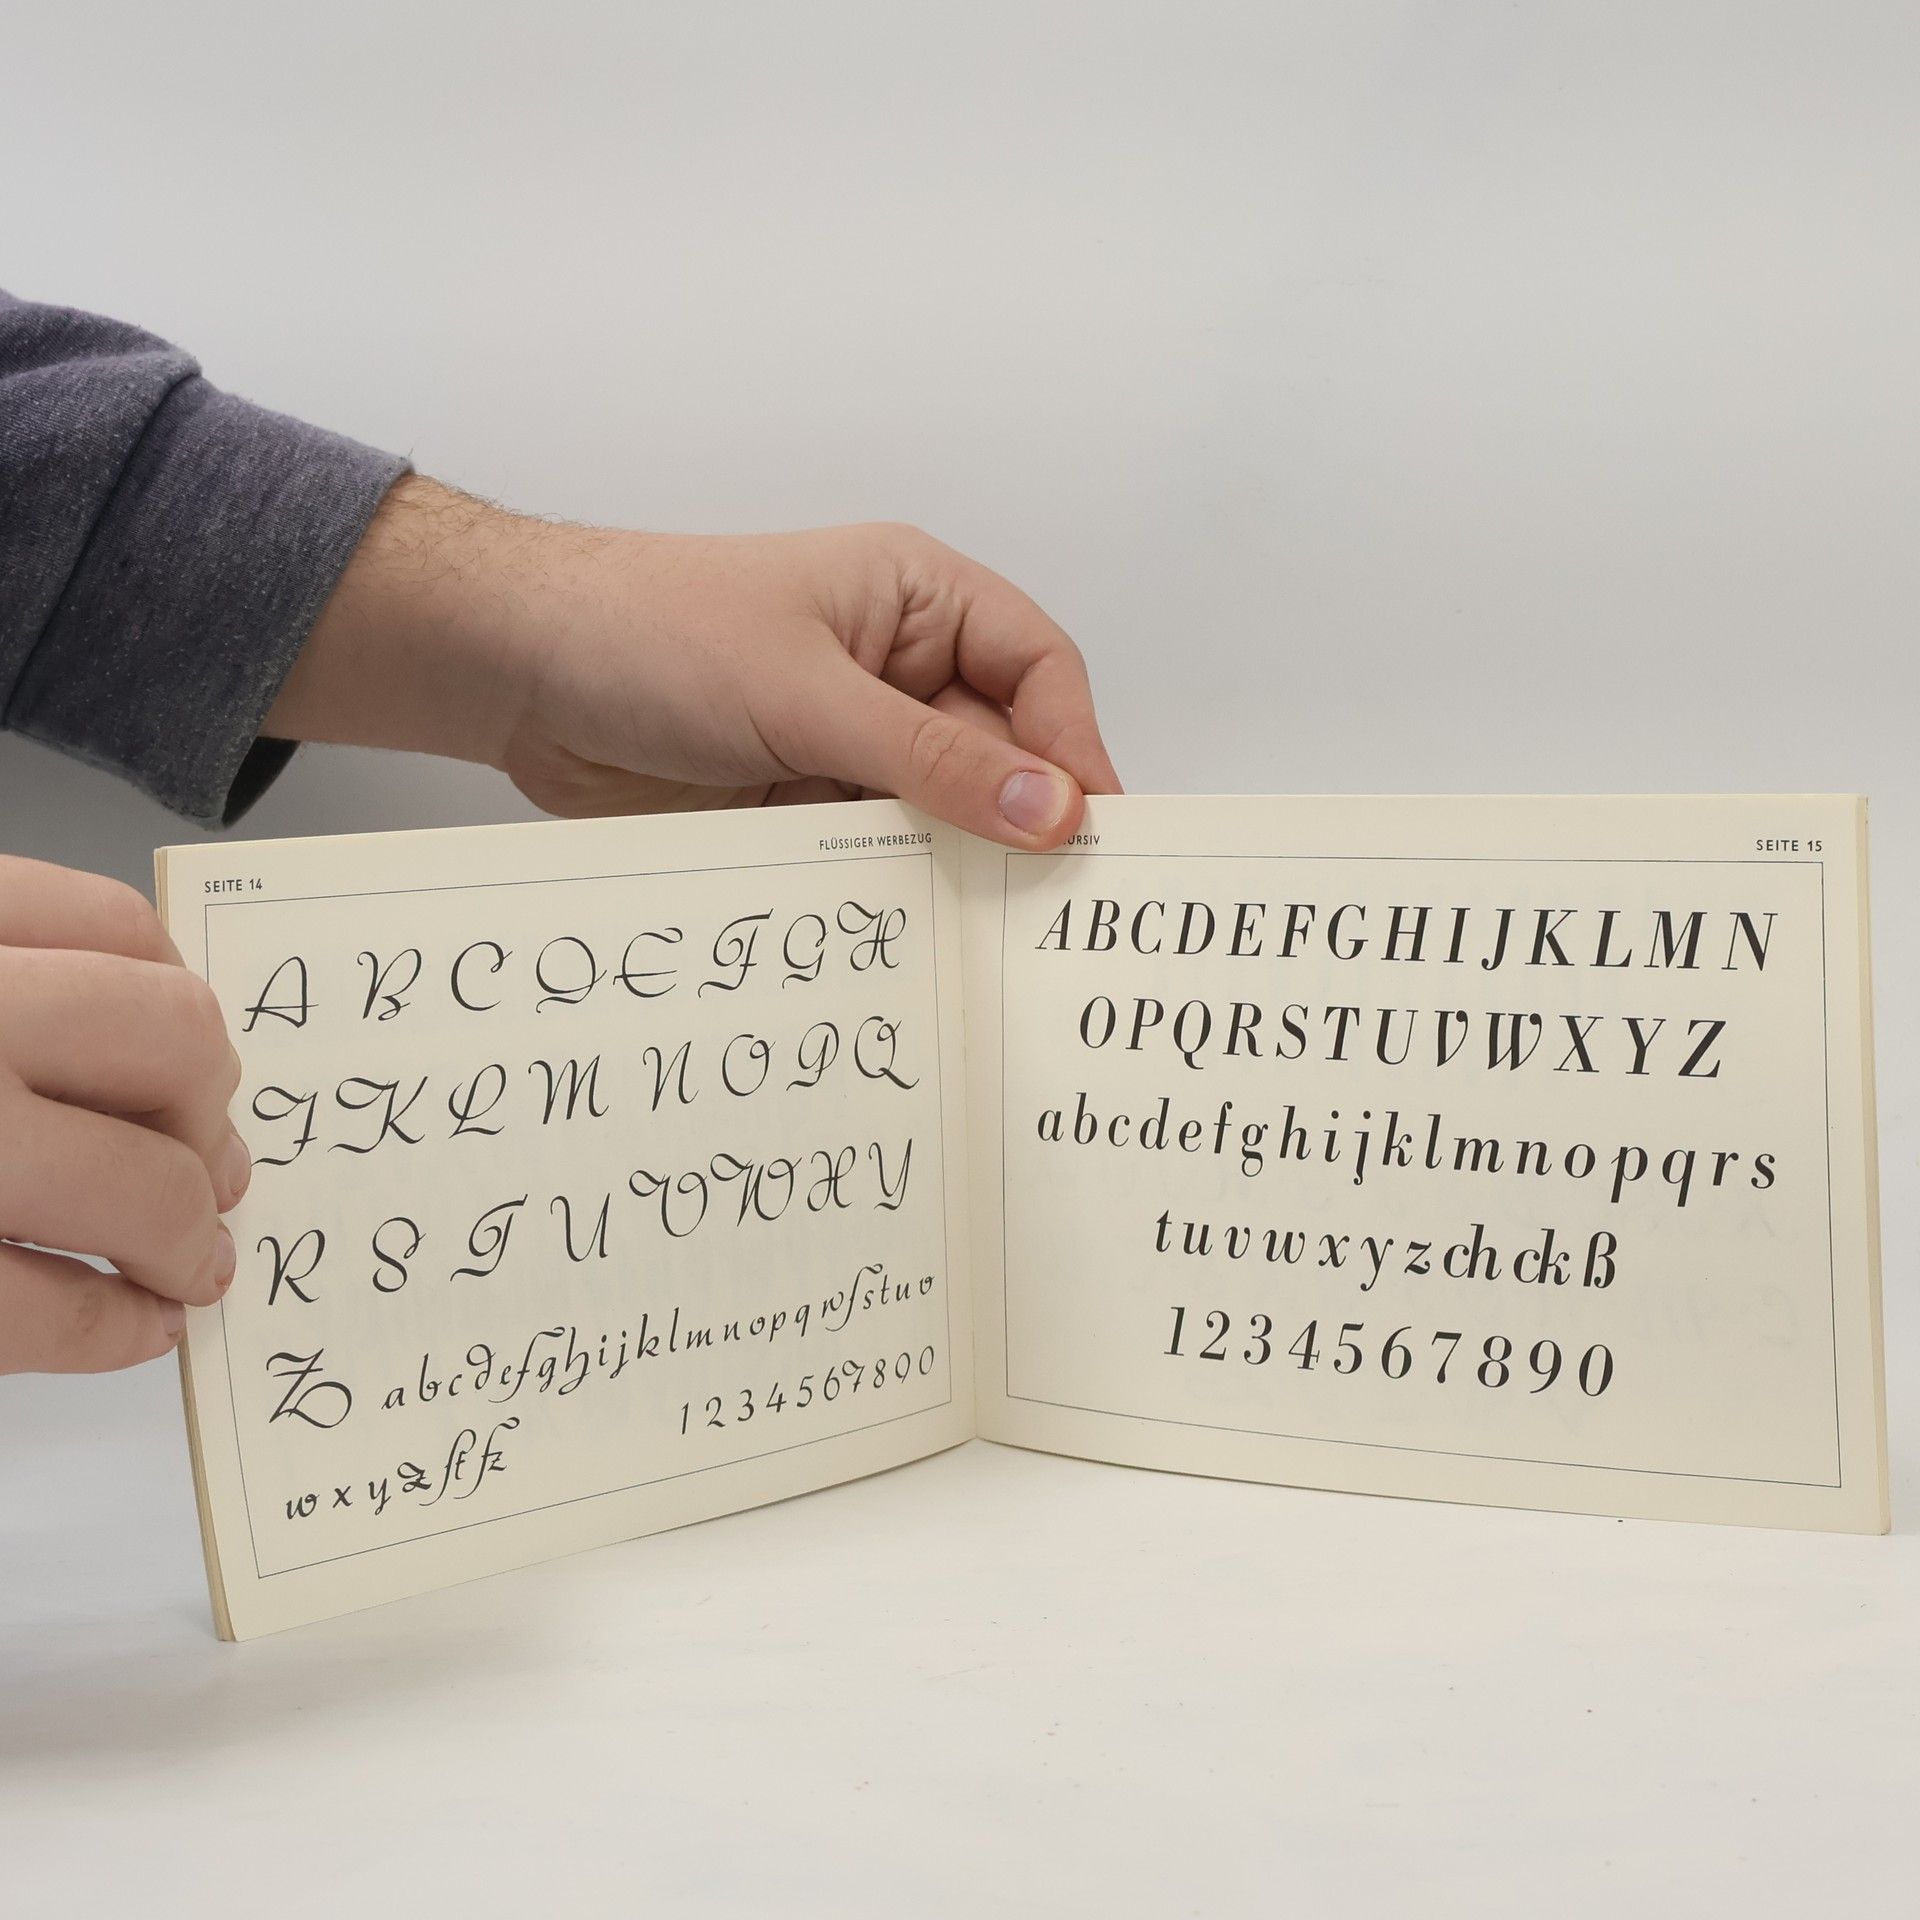 SEITE 14
FLÜSSIGER WERBEZUG
A B C D E F G H
J K L M N O P Q
R S T U V W X Y
Z a b c d e f g h i j k l m n o p q r ſ s t u v
w x y z ſt tz
1 2 3 4 5 6 7 8 9 0
SEITE 15
ABCDEFGHIJKLMN
OPQRSTUVWXYZ
abcdefghijklmnopqrs
tuvwxyzchckß
1234567890